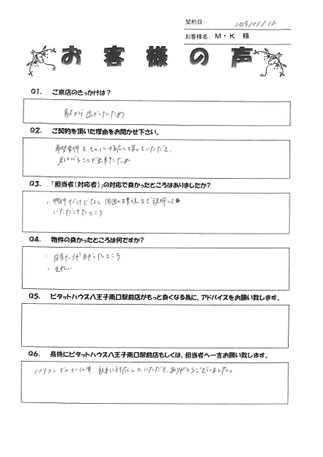 契約日: 2014/01/12
お客様名: M・K 様
お客様の声
Q1. ご来店のきっかけは?
駅から近かったため
Q2. ご契約を頂いた理由をお聞かせ下さい。
希望条件をもとに
ことが出来たため
Q3. 「担当者(対応者)」の対応で良かったところはありましたか?
・物件だけでなく周囲の環境まで説明して
いただけたところ
Q4. 物件の良かったところは何ですか?
・日当たりが良かったところ
Q5. ピタットハウス八王子南口駅前店がもっと良くなる為に、アドバイスをお願い致します。
Q6. 最後にピタットハウス八王子南口駅前店もしくは、担当者へ一言お願い致します。
していただき、ありがとうございました。